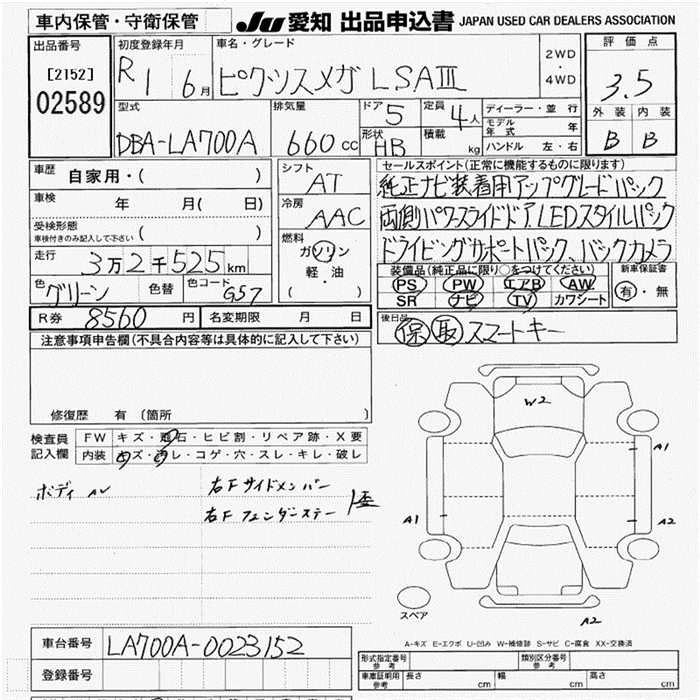 車内保管・守衛保管
JU 愛知 出品申込書 JAPAN USED CAR DEALERS ASSOCIATION
出品番号
[2152]
02589
初度登録年月
R1 6月
車名・グレード
ピクシスメガ LSAⅢ
2WD
・
4WD
評価点
3.5
外装 内装
B B
型式
DBA-LA700A
排気量
660cc
ドア 5
定員 4人
形状 HB
積載 kg
ディーラー・並行
モデル年式 年
ハンドル 左・右
車歴 自家用・( )
車検 年 月( 日)
受検形態
車検付きのみ記入して下さい ( )
走行 3万2千525km
色 グリーン
色替
色コード G57
シフト
AT
冷房
AAC
燃料
ガソリン
軽・油
( )
セールスポイント(正常に機能するものに限ります)
純正ナビ装着用アップグレードパック
両側パワースライドドア.LEDスタイルパック
ドライビングサポートパック、バックカメラ
装備品(純正品に限り○をつけてください)
PS PW エアB AW
SR ナビ TV カワシート
新車保証書
有・無
R券 8560円
名変期限 月 日
後日品
保 取 スマートキー
注意事項申告欄(不具合内容等は具体的に記入して下さい)
修復歴 有 (箇所 )
検査員記入欄
FW キズ・飛石・ヒビ割・リペア跡・X要
内装 キズ・汚レ・コゲ・穴・スレ・キレ・破レ
ボディ AV
右Fサイドメンバー
右Fフェンダーステー
W2
A1
A1
A2
A2
スペア
A-キズ E-エクボ U-凹み W-補修跡 S-サビ C-腐食 XX-交換済
車台番号 LA700A-0023152
登録番号
形式指定番号 参考
類別区分番号 参考
車庫証明用 参考 長さ cm 幅 cm 高さ cm